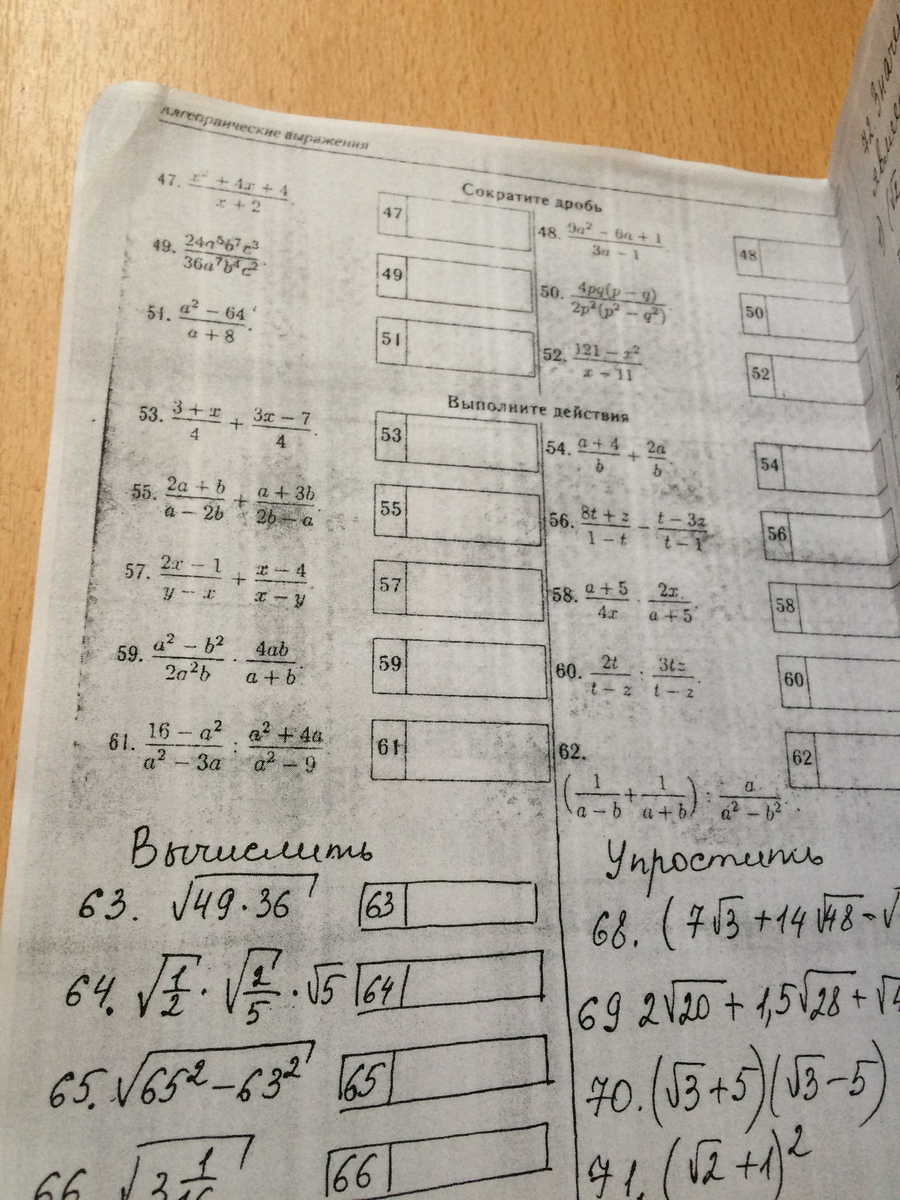 Алгебраические выражения
Сократите дробь
47. (x² + 4x + 4)/(x + 2). 47
48. (9a² − 6a + 1)/(3a − 1) 48
49. (24a⁵b⁷c³)/(36a⁷b⁴c²). 49
50. (4pq(p − q))/(2p²(p² − q²)) 50
51. (a² − 64)/(a + 8). 51
52. (121 − x²)/(x − 11) 52
Выполните действия
53. (3 + x)/4 + (3x − 7)/4. 53
54. (a + 4)/b + 2a/b. 54
55. (2a + b)/(a − 2b) + (a + 3b)/(2b − a) 55
56. (8t + z)/(1 − t) − (t − 3z)/(t − 1) 56
57. (2x − 1)/(y − x) + (x − 4)/(x − y). 57
58. (a + 5)/(4x) · 2x/(a + 5). 58
59. (a² − b²)/(2a²b) · 4ab/(a + b). 59
60. 2t/(t − z) : 3tz/(t − z). 60
61. (16 − a²)/(a² − 3a) : (a² + 4a)/(a² − 9). 61
62. 62
(1/(a − b) + 1/(a + b)) : a/(a² − b²).
Вычислить
63. √(49·36) 63
64. √(1/2) · √(2/5) · √5 64
65. √(65² − 63²) 65
66 66
Упростить
68. (7√3 + 14√48 − √
69 2√20 + 1,5√28 + √
70. (√3 + 5)(√3 − 5)
71. (√2 + 1)²